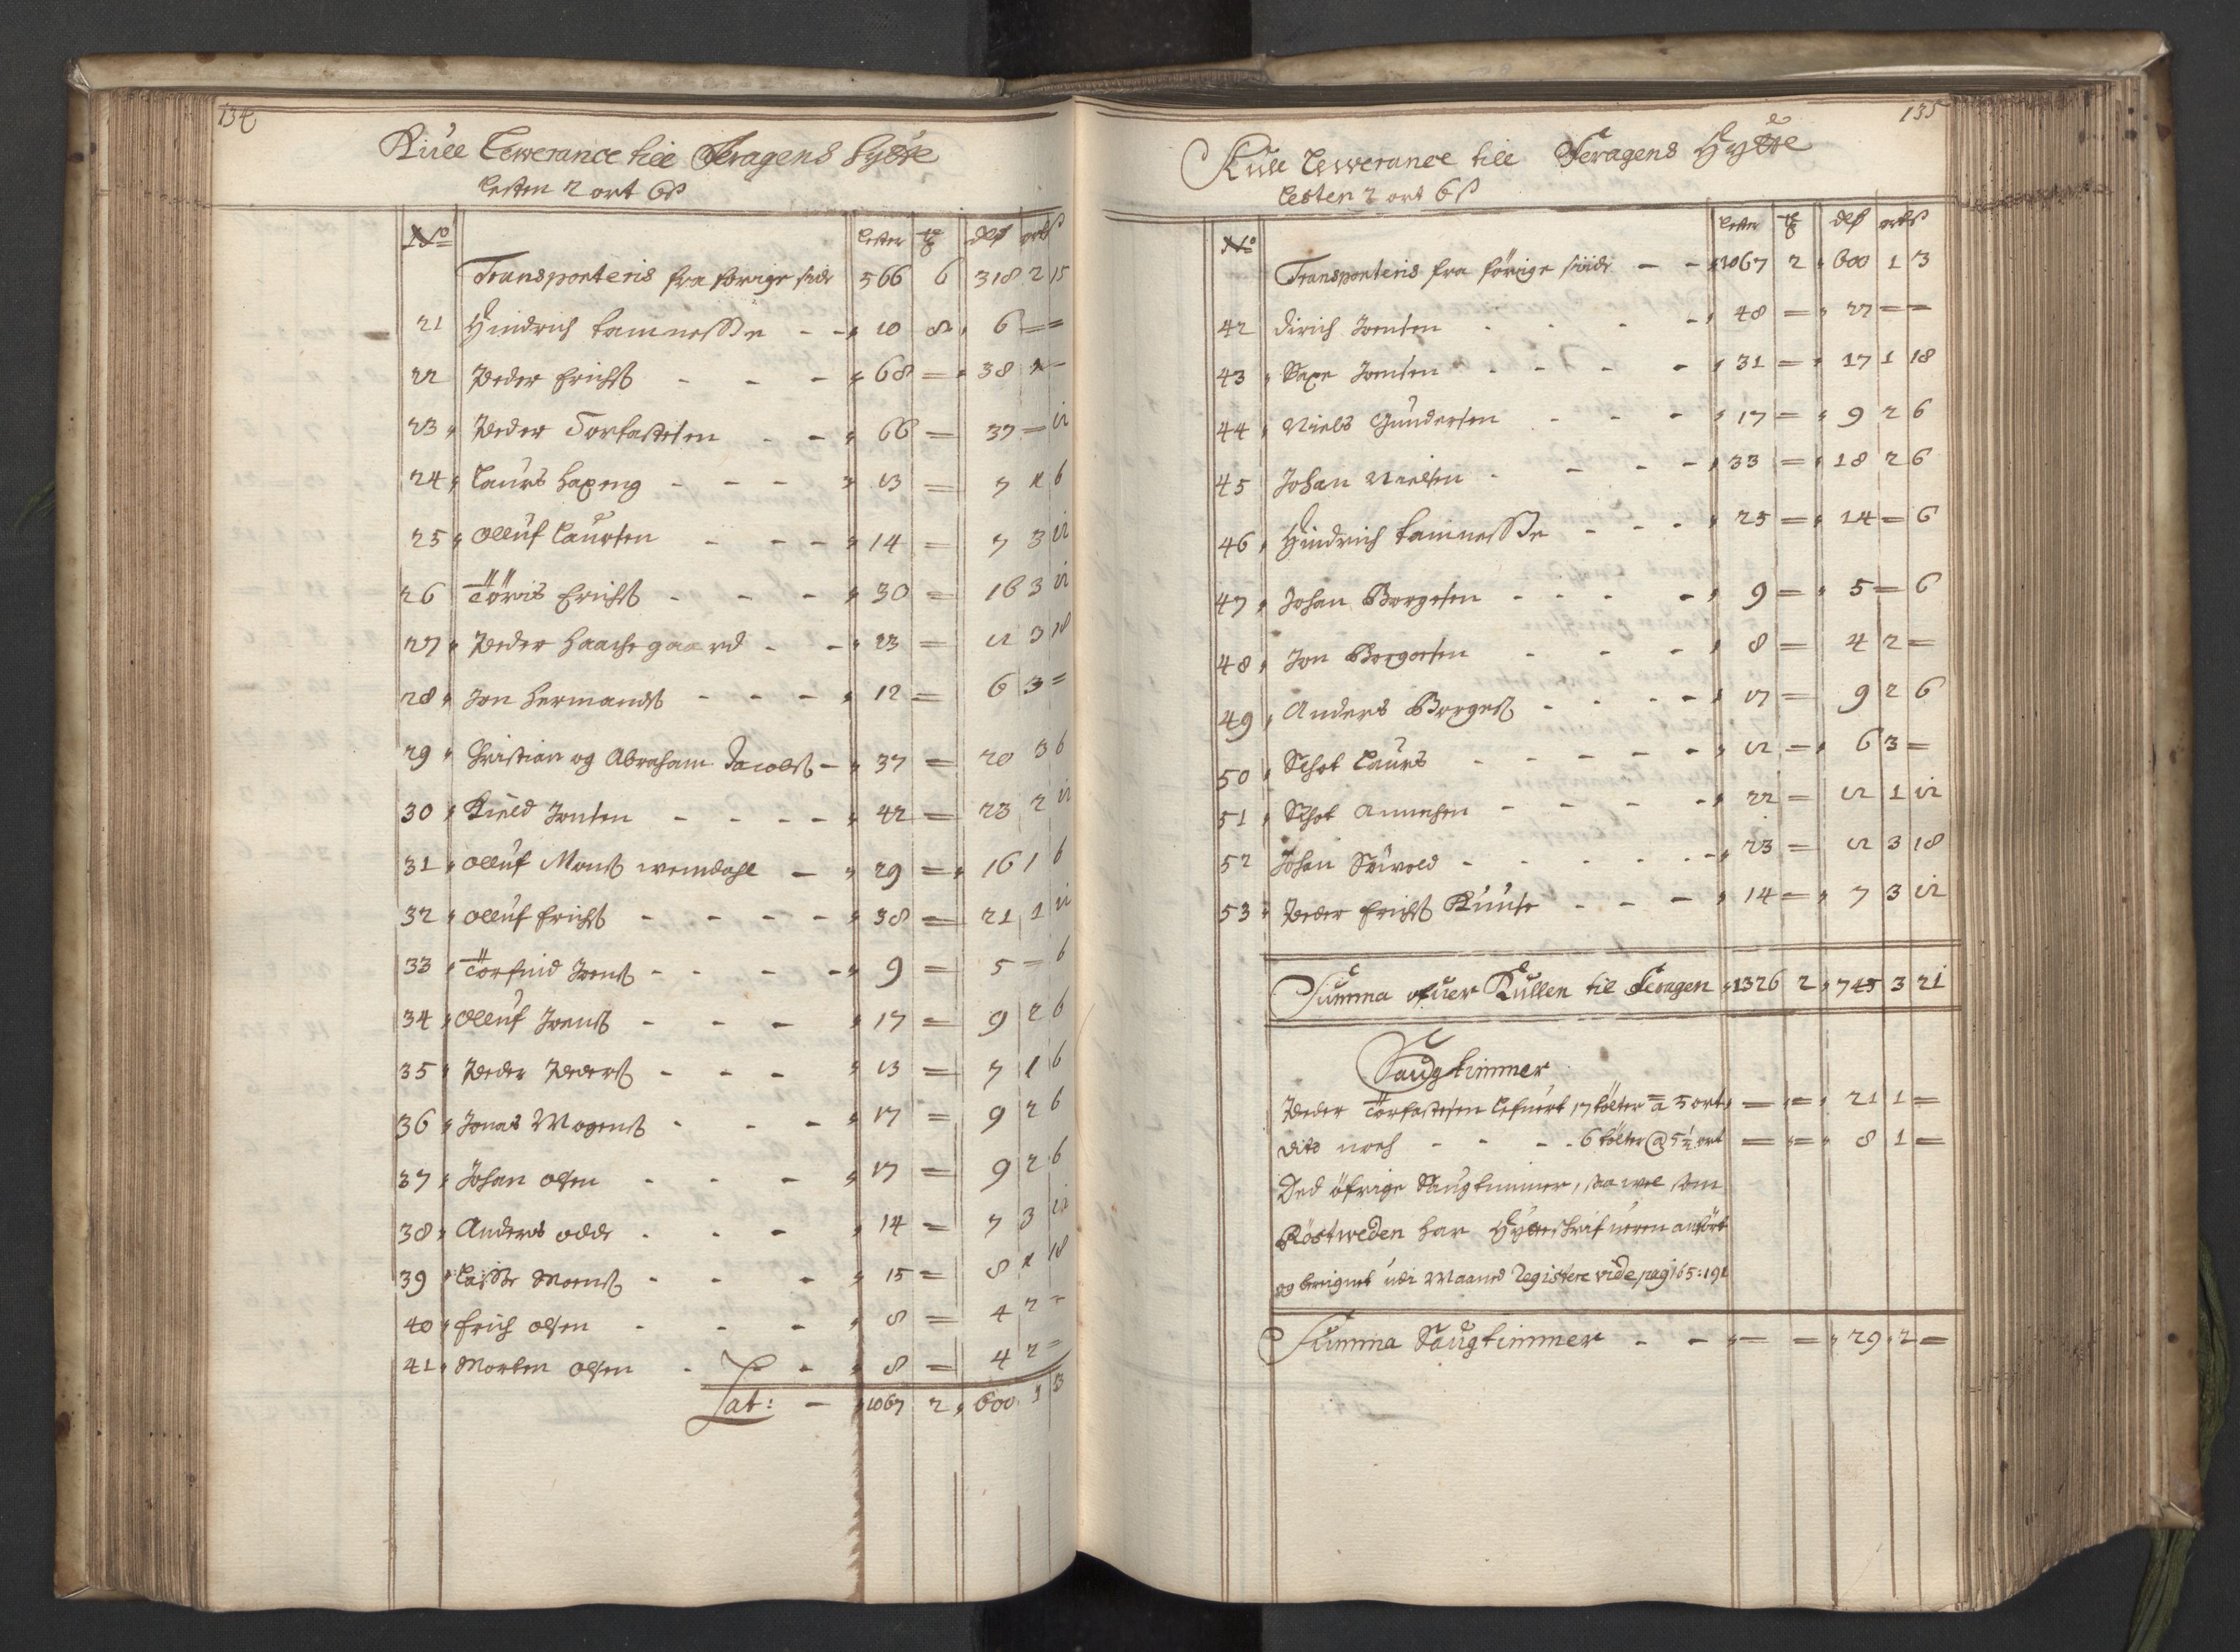 134
Kull Lewerance till Feragens hytte
Lesten 2 ort 6 ß
No Lester tr dlr ort ß
Transporteris fra forrige side 566 6 318 2 15
21 Hindrich - - 10 8 6 = =
22 Peder Erichs - - - 68 = 38 1 -
23 Peder Torfastesen - - 66 = 37 = 12
24 Laurs Haxeng - - - 13 = 7 1 6
25 Olluf Laursen - - - 14 = 7 3 12
26 Töris Erichs - - - 30 = 16 3 12
27 Peder Haachegaard - - 23 = 12 3 18
28 Jon Hermands - - - 12 = 6 3 =
29 Christian og Abraham Jacobs - 37 = 20 3 6
30 Kield Jonsen - - - - 42 = 23 2 12
31 Olluf Mons wemdahl - 29 = 16 1 6
32 Olluf Erichs - - - - 38 = 21 1 12
33 Törfind Joens - - - - 9 = 5 = 6
34 Olluf Joens - - - 17 = 9 2 6
35 Peder Peders - - - 13 = 7 1 6
36 Jonas Mogens - - - 17 = 9 2 6
37 Johan Olsen - - - 17 = 9 2 6
38 Anders Odde - - - 14 = 7 3 12
39 Lasse Moens - - - 15 = 8 1 18
40 Erich Olsen - - - 8 = 4 2 =
41 Morten Olsen - - 8 = 4 2 =
Lat: - 1067 2 600 1 3
135
Kull Lewerance till Feragens Hytte
Lesten 2 ort 6 ß
No Lester tr dlr ort ß
Transporteris fra förrige siide - - 1067 2 600 1 3
42 Dirich Joensen - - - - 48 = 27 = =
43 Saxe Joensen - - - - 31 = 17 1 18
44 Niels Gundersen - - - 17 = 9 2 6
45 Johan Nielsen - - - - 33 = 18 2 6
46 Hindrich - - - 25 = 14 = 6
47 Johan Borgesen - - - - 9 = 5 = 6
48 Jon Borgersen - - - 8 = 4 2 =
49 Anders Borges - - - - 17 = 9 2 6
50 Schot Laurs - - - - - 12 = 6 3 =
51 Schot - - - - - 22 = 12 1 12
52 Johan - - - - - - 23 = 12 3 18
53 Peder Erichs Kuuse - - - 14 = 7 3 12
Summa ofuer Kullen til Feragen 1326 2 745 3 21
Saugtimmer
Peder Törfastesen lefuert 17 tölter a 5 ort = = 21 1 =
dito noch - - - - 6 tölter @ 5½ ort = = 8 1 =
Ded öfrige Saugtimmer, saa wel som
Röstweden har Hytteschrifueren anfört
og bereignet udi Maaned Registere vide pag 165: 191
Summa Saugtimmer - - = = 29 2 =